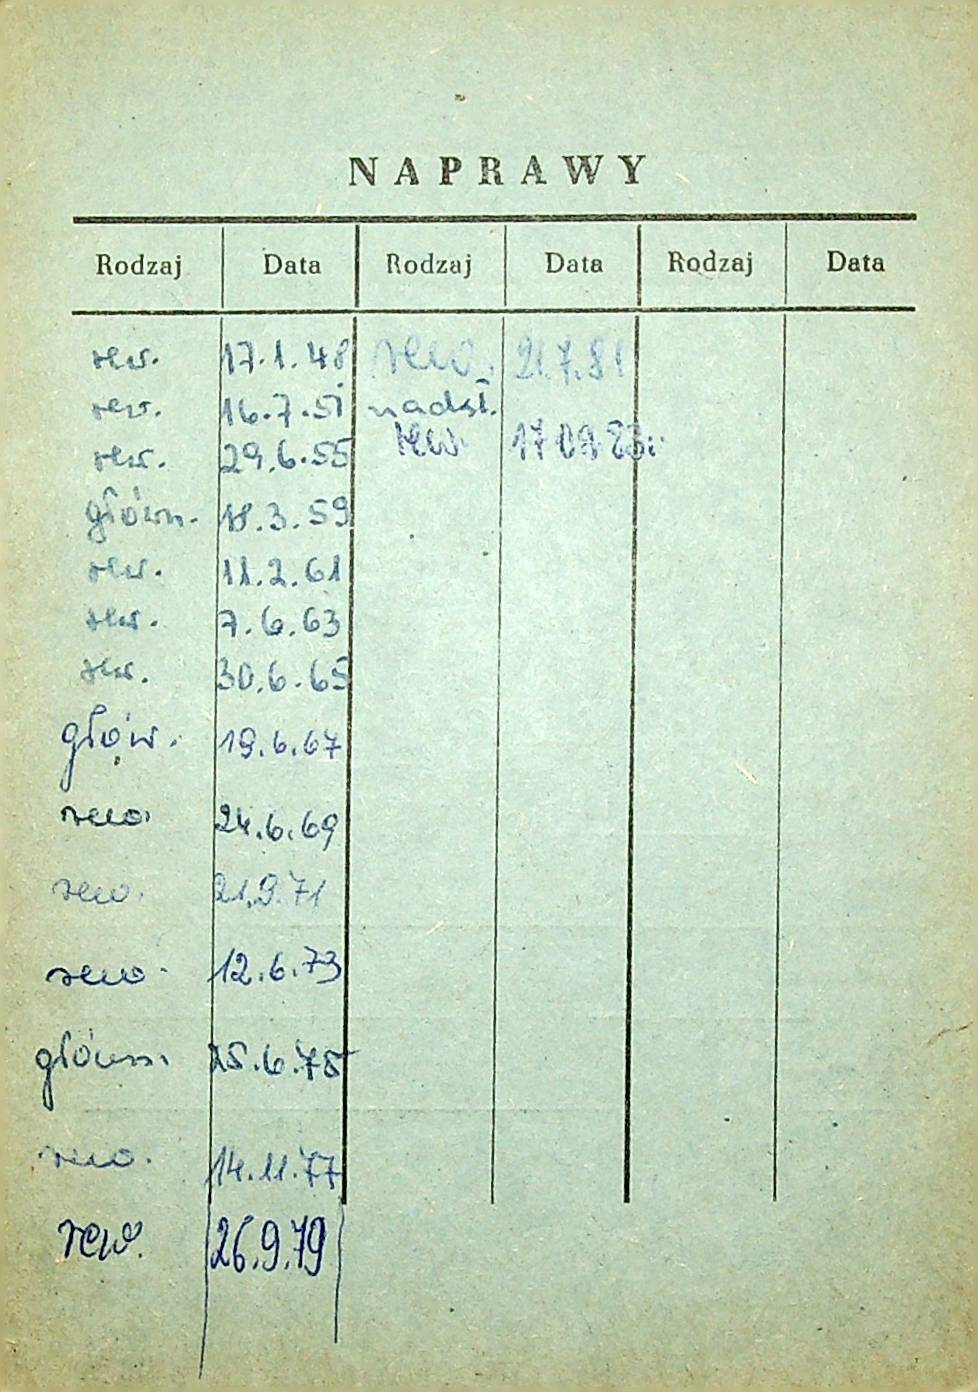 NAPRAWY
Rodzaj Data Rodzaj Data Rodzaj Data
rew. 17.1.48 rew. 21.7.81
rew. 16.7.51 nadzł.
rew. 29.6.55 rew. 17.09.83r.
główn. 18.3.59
rew. 11.2.61
rew. 7.6.63
rew. 30.6.65
główn. 19.6.67
rew. 24.6.69
rew. 21.9.71
rew. 12.6.73
główn. 25.6.75
rew. 14.11.77
rew. 26.9.79